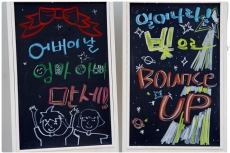 어버이날
엄마 아빠
만세!!
일어나라!!
빛으로
BOUNCE
UP